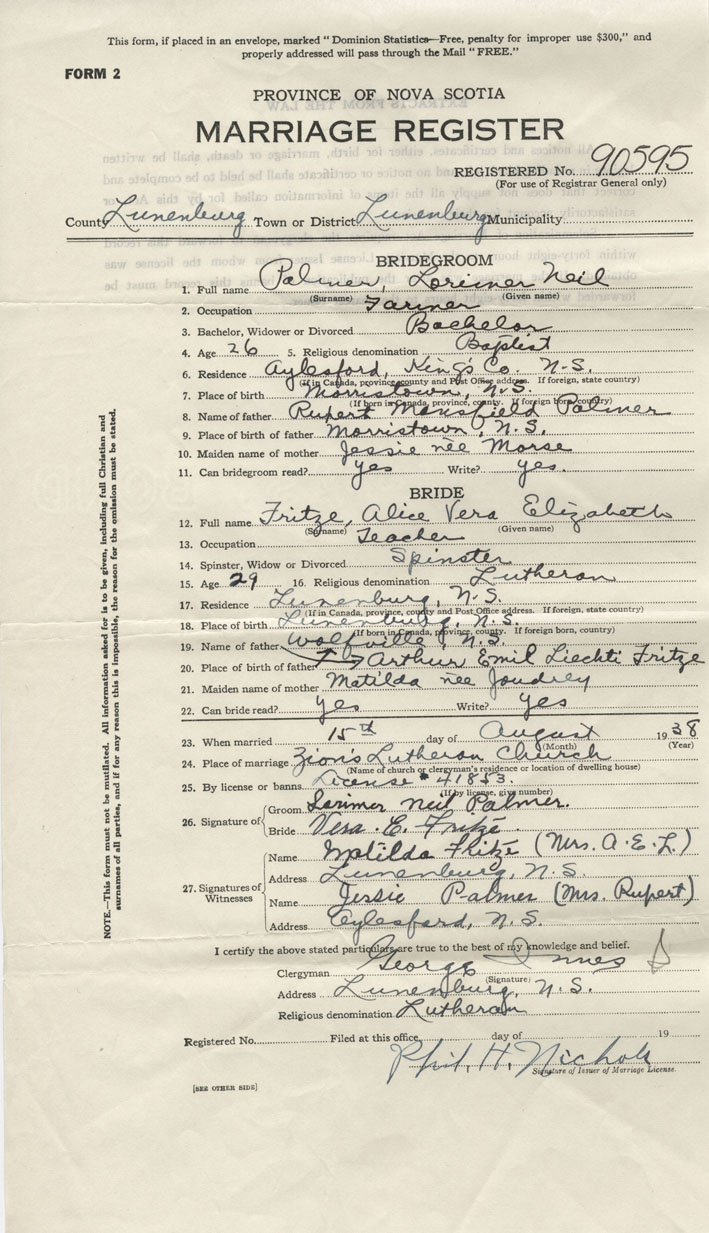 This form, if placed in an envelope, marked "Dominion Statistics—Free, penalty for improper use $300," and
properly addressed will pass through the Mail "FREE."
FORM 2
PROVINCE OF NOVA SCOTIA
MARRIAGE REGISTER
REGISTERED No. 90595
(For use of Registrar General only)
County Lunenburg Town or District Lunenburg Municipality
BRIDEGROOM
1. Full name Palmer, Lorimer Neil
(Surname) (Given name)
2. Occupation Farmer
3. Bachelor, Widower or Divorced Bachelor
4. Age 26 5. Religious denomination Baptist
6. Residence Aylesford, King's Co. N.S.
(If in Canada, province, county and Post Office address. If foreign, state country)
7. Place of birth Morristown, N.S.
(If born in Canada, province, county. If foreign born, country)
8. Name of father Rupert Mansfield Palmer
9. Place of birth of father Morristown, N.S.
10. Maiden name of mother Jessie née Morse
11. Can bridegroom read? yes Write? yes.
BRIDE
12. Full name Fritze, Alice Vera Elizabeth
(Surname) (Given name)
13. Occupation Teacher
14. Spinster, Widow or Divorced Spinster
15. Age 29 16. Religious denomination Lutheran
17. Residence Lunenburg, N.S.
(If in Canada, province, county and Post Office address. If foreign, state country)
18. Place of birth Lunenburg, N.S.
(If born in Canada, province, county. If foreign born, country)
19. Name of father Wolfville, N.S.
20. Place of birth of father Arthur Emil Liechti Fritze
21. Maiden name of mother Matilda née Joudrey
22. Can bride read? yes Write? yes
23. When married 15th day of August 1938
(Month) (Year)
24. Place of marriage Zion's Lutheran Church
(Name of church or clergyman's residence or location of dwelling house)
25. By license or banns License # 41853.
(If by license, give number)
26. Signature of Groom Lorimer Neil Palmer.
Bride Vera E. Fritze
27. Signatures of Witnesses
Name Matilda Fritze (Mrs. A.E.L.)
Address Lunenburg, N.S.
Name Jessie Palmer (Mrs. Rupert)
Address Aylesford, N.S.
I certify the above stated particulars are true to the best of my knowledge and belief.
Clergyman George Innes
(Signature)
Address Lunenburg, N.S.
Religious denomination Lutheran
Registered No. Filed at this office, day of 19
Phil. H. Nichols
Signature of Issuer of Marriage License.
[SEE OTHER SIDE]
NOTE.—This form must not be mutilated. All information asked for is to be given, including full Christian and
surnames of all parties, and if for any reason this is impossible, the reason for the omission must be stated.